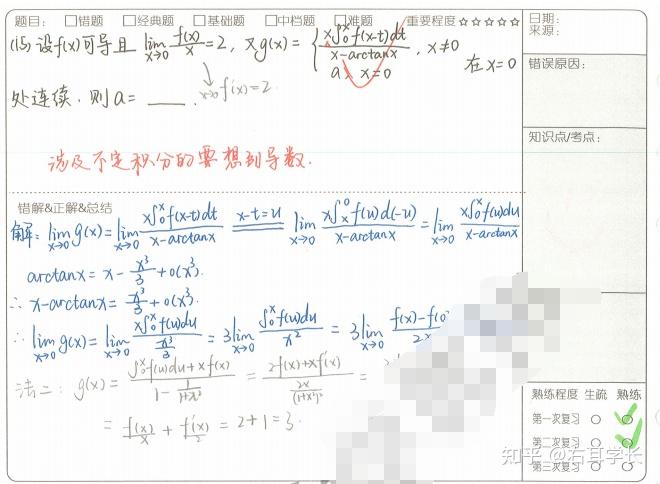 题目： □错题 □经典题 □基础题 □中档题 □难题 重要程度☆☆☆☆☆
日期：
来源：
(15) 设f(x)可导且 lim_{x→0} f(x)/x = 2, 又g(x) = { x∫₀ˣf(x-t)dt / (x-arctanx), x≠0
a, x=0
在x=0
x→0 f'(x)=2
处连续. 则a= ____.
涉及不定积分的要想到导数.
错误原因：
知识点/考点：
错解&正解&总结
解: lim_{x→0} g(x) = lim_{x→0} x∫₀ˣf(x-t)dt / (x-arctanx) x-t=u lim_{x→0} x∫ₓ⁰f(u)d(-u) / (x-arctanx) = lim_{x→0} x∫₀ˣf(u)du / (x-arctanx)
arctanx = x - x³/3 + o(x³).
∴ x-arctanx = x³/3 + o(x³).
∴ lim_{x→0} g(x) = lim_{x→0} x∫₀ˣf(u)du / (x³/3) = 3lim_{x→0} ∫₀ˣf(u)du / x² = 3lim_{x→0} f(x)-f(0) / 2x
法二: g(x) = (∫₀ˣf(u)du + xf(x)) / (1 - 1/(1+x²)) = (2f(x)+xf'(x)) / (2x/(1+x²)²) =
= f(x)/x + f'(x)/2 = 2+1 = 3.
熟练程度 生疏 熟练
第一次复习 ○ ○
第二次复习 ○ ○
第三次复习 ○ ○
知乎 @右耳学长